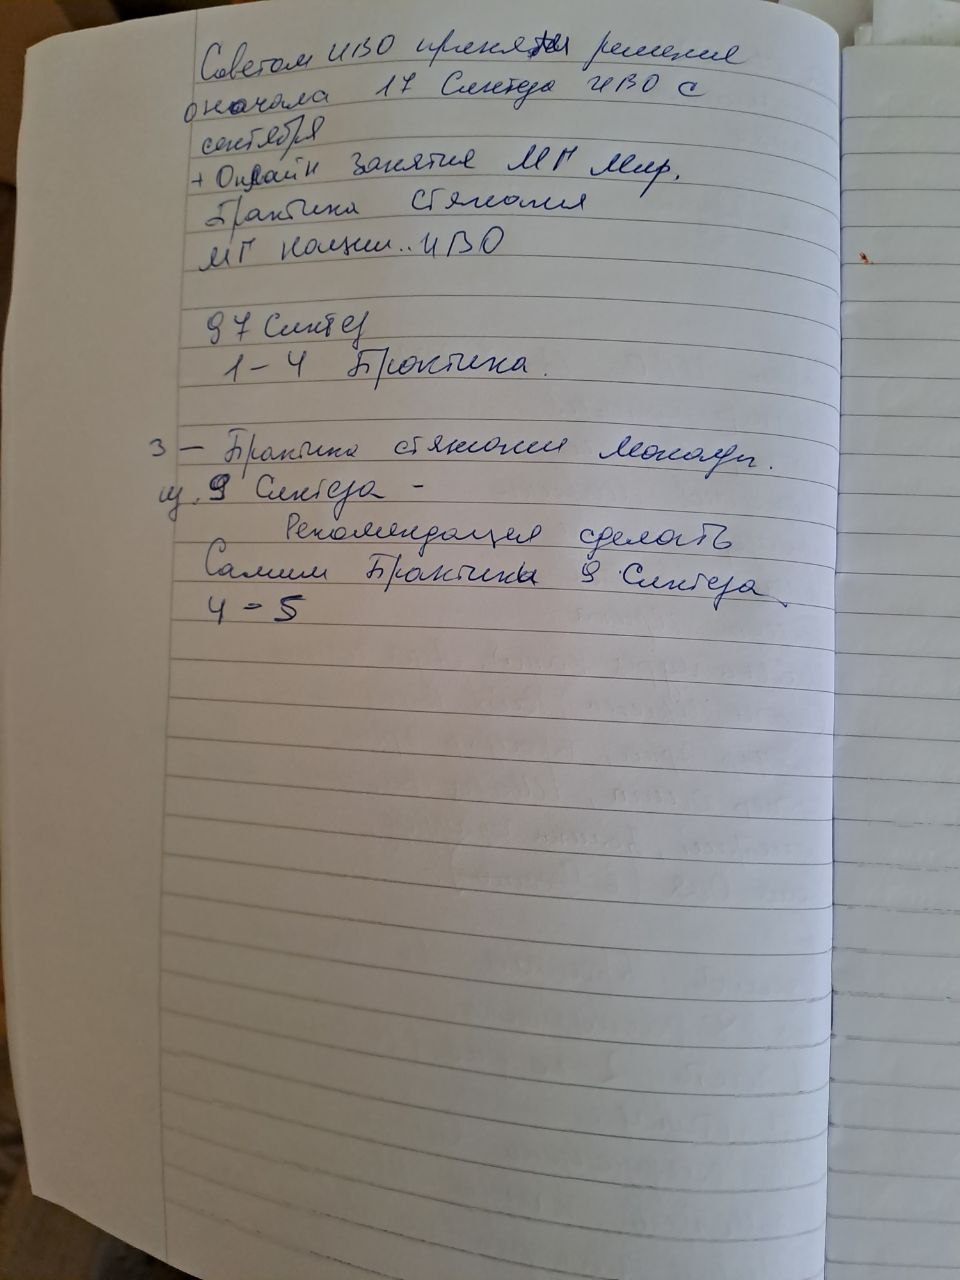 Советом ИВО приняты решение
о начала 17 Синтеза ИВО с
сентября
+ Онлайн занятия МГ Мир.
Практика стяжания
МГ нации.. ИВО
97 Синтез
1 – 4 Практика.
3 – Практика стяжании Монады.
из 9 Синтеза –
Рекомендация сделать
Самим Практики 9 Синтеза
4 – 5